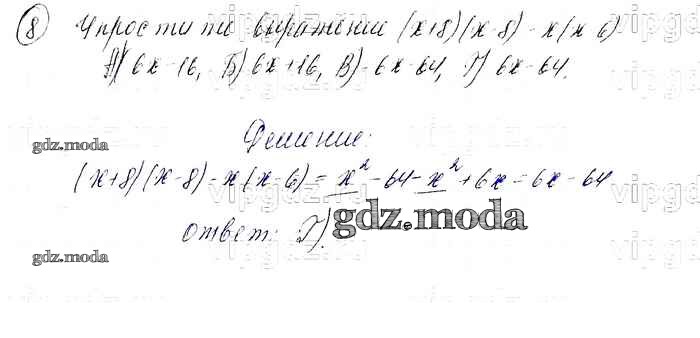 8 Упростити выражение (x+8)(x-8) - x(x-6)
А) 6x-16, Б) 6x+16, В) -6x-64, Г) 6x-64.
Решение:
gdz.moda
(x+8)(x-8)-x(x-6) = x² - 64 - x² + 6x = 6x - 64
gdz.moda
ответ: Г).
gdz.moda